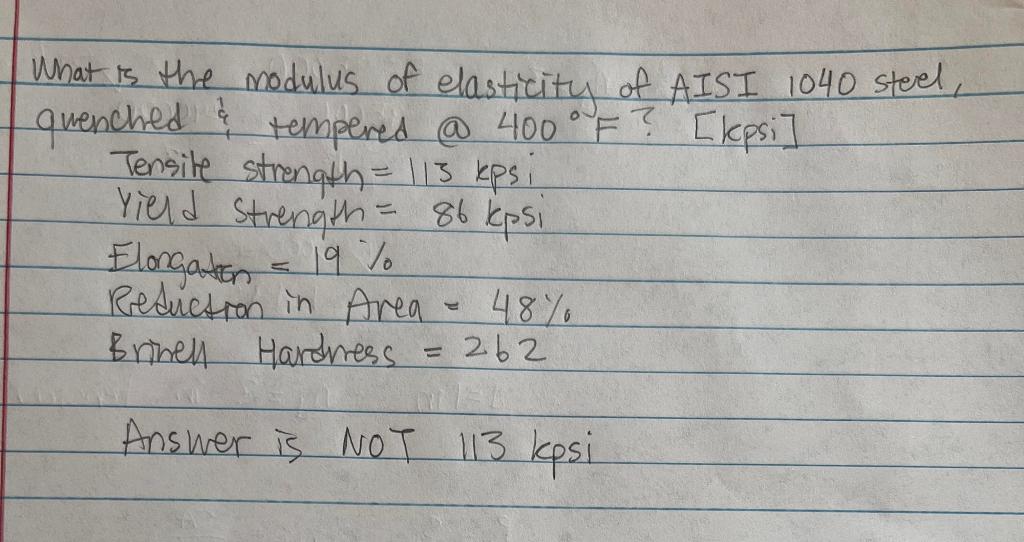 What is the modulus of elasticity of AISI 1040 steel,
quenched & tempered @ 400°F? [kpsi]
Tensile strength = 113 kpsi
Yield strength = 86 kpsi
Elongation = 19%
Reduction in Area = 48%
Brinell Hardness = 262
Answer is NOT 113 kpsi